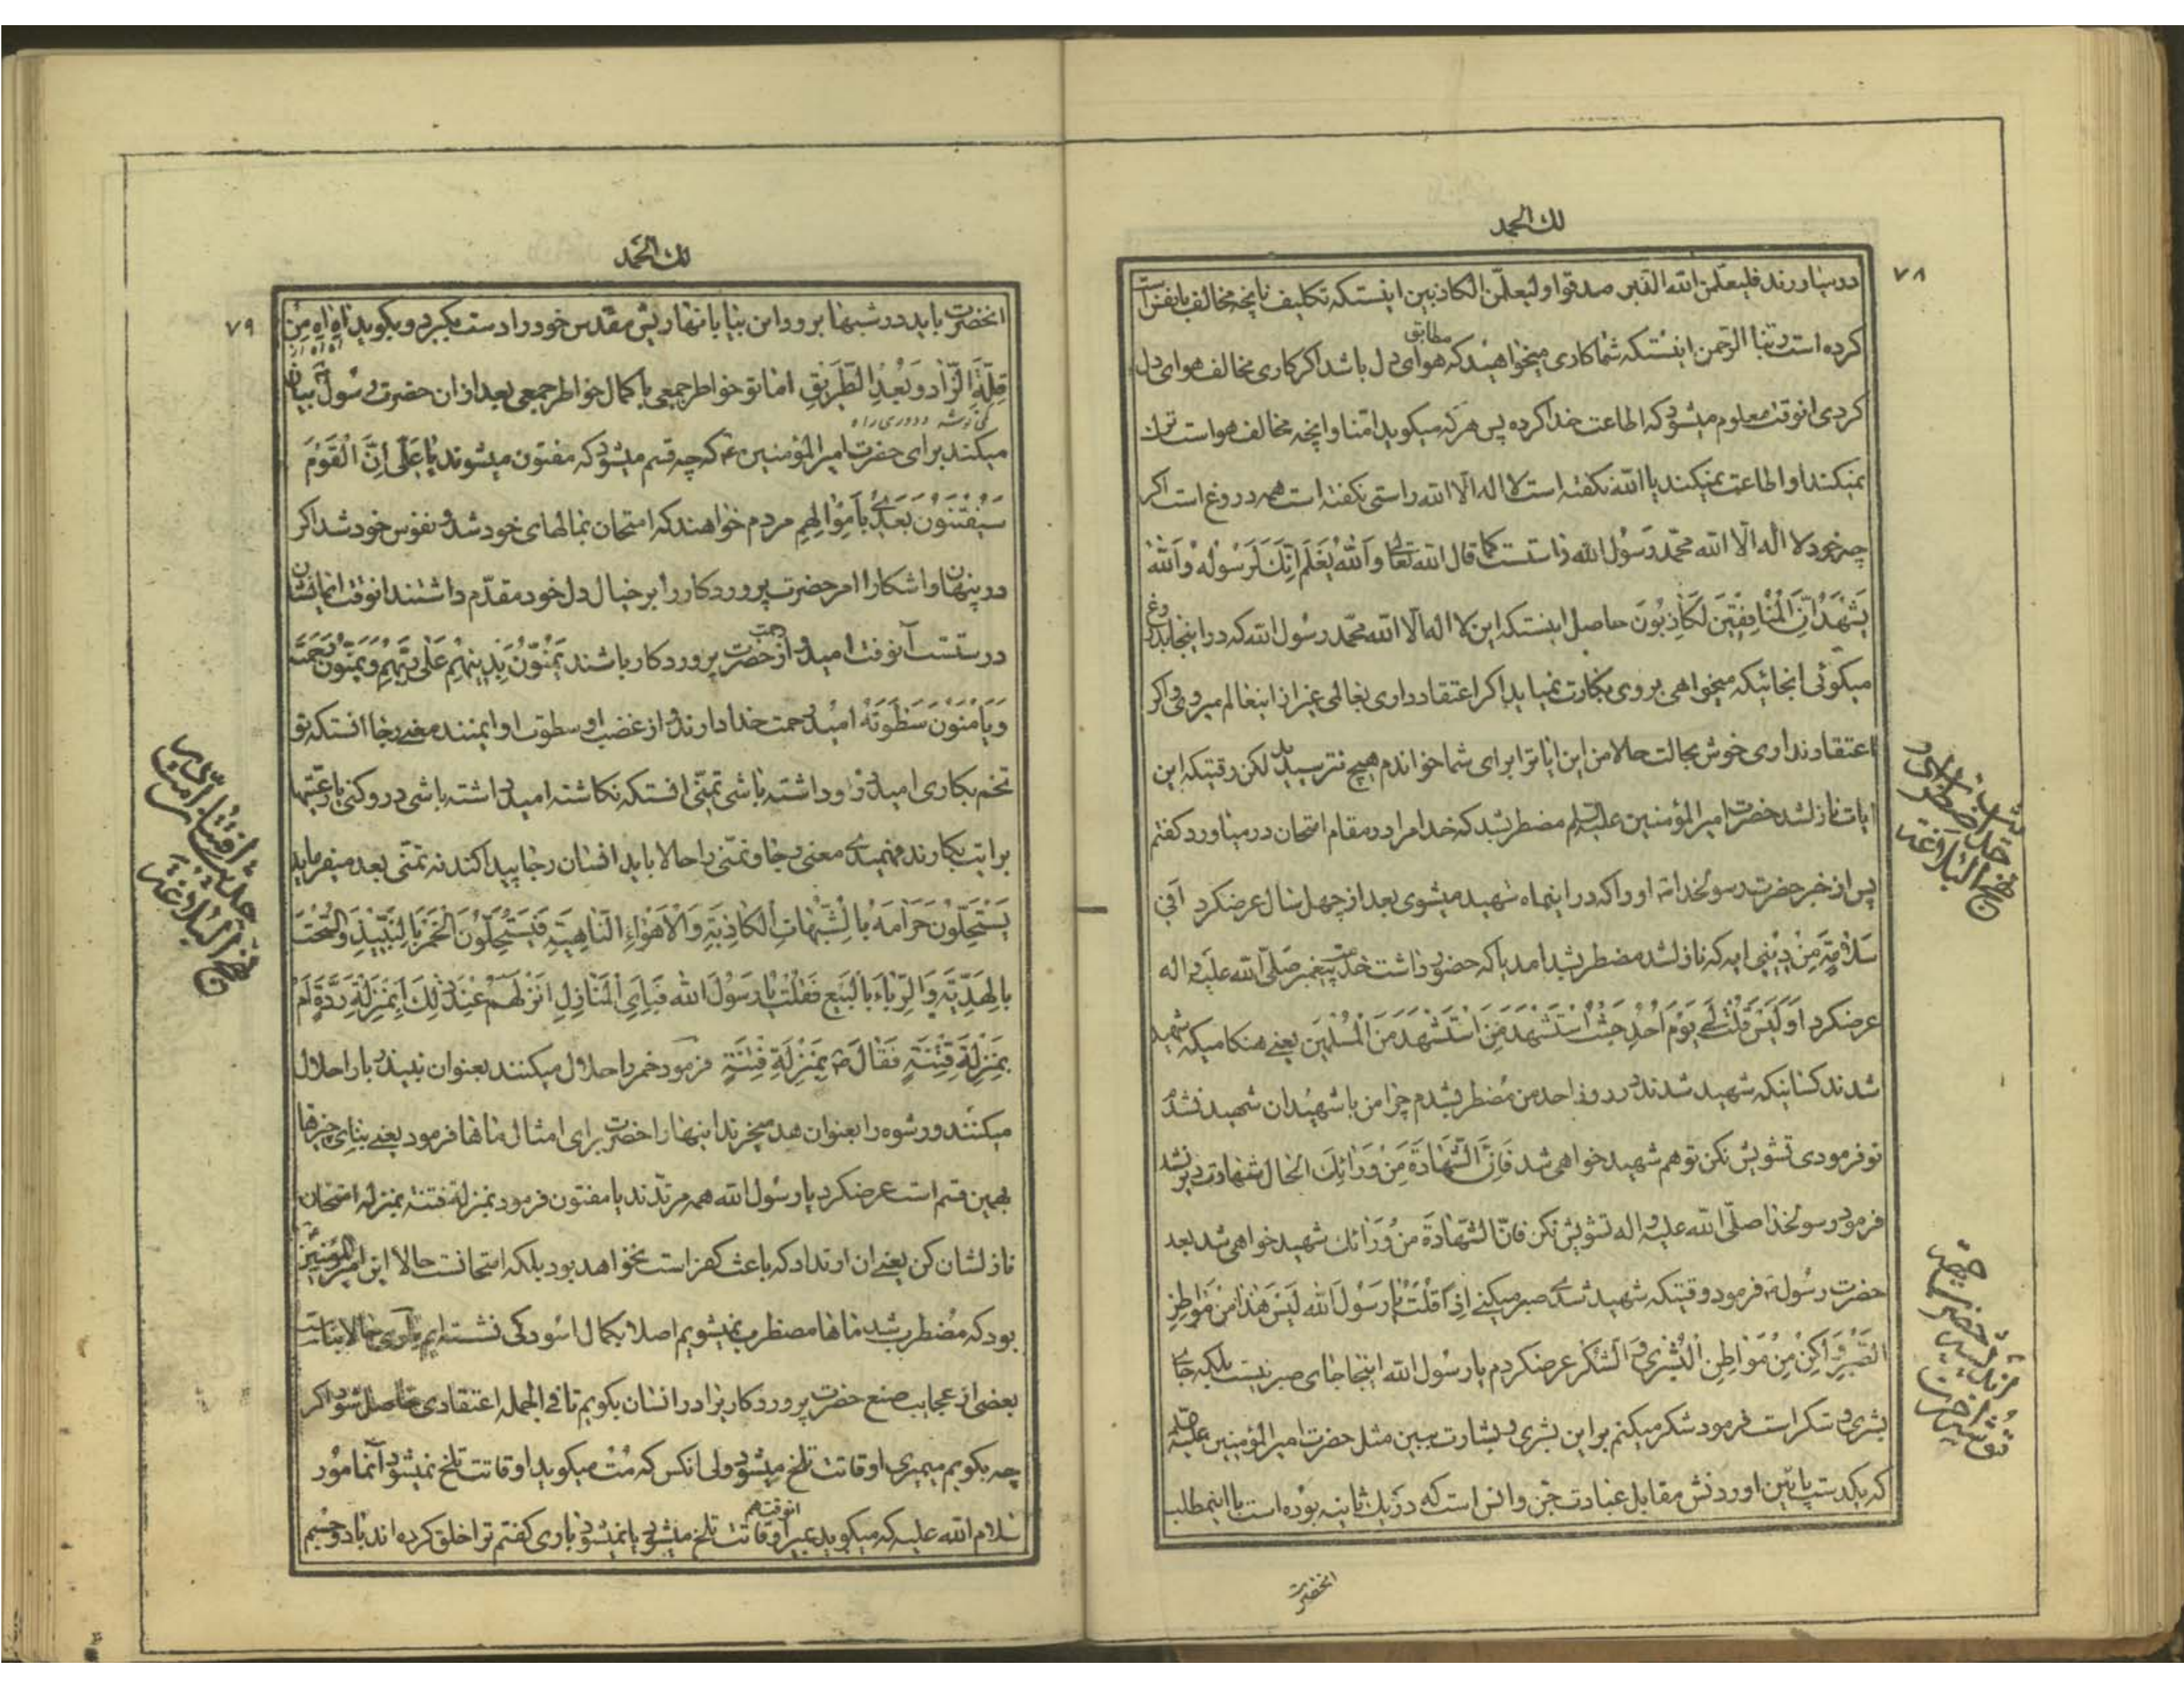 لك الحمد
٧٨
در بیاورند فلیعلمن الله الذین صدقوا ولیعلمن الکاذبین اینستکه تکلیف نا
کرده است ربنا الرحمن اینستکه شما کاری میخواهید که مطابق هوای دل باشد اکر کاری مخالف هوای دل
کردی انوقت معلوم میشود که اطاعت خدا کرده پس هرکه میکوید امنا وانچه مخالف هواست ترك
نمیکند او اطاعت نمیکند یا الله نکفته است لا اله الا الله راستی نکفته است همه دروغ است اکر
چه خود لا اله الا الله محمد رسول الله راستست کما قال الله تعالی والله یعلم انك لرسوله والله
یشهد ان المنافقین لکاذبون حاصل اینستکه این لا اله الا الله محمد رسول الله که در اینجا بدروغ
میکوئی انجائیکه میخواهی بروی بکارت نمیاید اکر اعتقاد داری بعالمی غیر از اینعالم میروی واکر
اعتقاد نداری خوش بحالت حالا من این ایاترا برای شما خواندم هیچ نترسیدید لکن وقتیکه این
ایات نازلشد حضرت امیر المؤمنین علیه السلام مضطر شد که خدا مرا در مقام امتحان درمیاورد کفتم
پس از خبر حضرت رسولخدا او را که در اینماه شهید میشوی بعد از چهل سال عرضکرد افی
سلامة من دینی ایه که نازلشد مضطر شد امد با که حضور داشت خدمت پیغمبر صلی الله علیه واله
عرضکرد اولیس قلت لی یوم احد حیث استشهد من استشهد من المسلمین یعنی هنکامیکه شهید
شدند کسانیکه شهید شدند در روز احد من مضطر شدم چرا من با شهیدان شهید نشدم
تو فرمودی تشویش نکن تو هم شهید خواهی شد فان الشهادة من ورائك الحال شهادت دیر نشد
فرمود رسولخدا صلی الله علیه واله تشویش نکن فان الشهادة من ورائك شهید خواهی شد بعد
حضرت رسول فرمود وقتیکه شهید شدی صبر میکنی اذا قلت یا رسول الله لیس هذا من مواطن
الصبر ولکن من مواطن البشری والشکر عرضکردم یا رسول الله اینجا جای صبر نیست بلکه جای
بشری و شکر است فرمود شکر میکنم براین بشری و بشارت ببین مثل حضرت امیر المؤمنین علیه
که یکدست پائین اوردنش مقابل عبادت جن وانس است که در یك ثانیه بوده است با اینمطلب
انحضرت
خطبه
نهج البلاغة
لك الحمد
٧٩
انحضرت باید در شبها برود این بیابانها ریش مقدس خود را دست بکیرد و بکوید اه اه من
قلة الزاد وبعد الطریق اما تو خواطر جمعی با کمال خواطر جمعی بعد از ان حضرت رسول بیان
کمی توشه ودوری راه
میکند برای حضرت امیر المؤمنین که چه قسم میشود که مفتون میشوند یا علی ان القوم
سیفتنون بعدی باموالهم مردم خواهند که امتحان بمالهای خود شد و نفوس خود شد اکر
در پنهان واشکارا امر حضرت پروردکار را بر خیال دل خود مقدم داشتند انوقت ایمانشان
درستست آنوقت امید رحمت از حضرت پروردکار باشند یمنون بدینهم علی ربهم ویتمنون رحمته
ویامنون سطوته امید رحمت خدا دارند و از غضب او سطوت او ایمنند معنی رجا انستکه تو
تخم بکاری امید درو داشته باشی تمنی انستکه نکاشته امید داشته باشی درو کنی یا رعیتها
برایت بکارند فهمیدی معنی رجا وتمنی را حالا باید انسان رجا پیدا کند نه تمنی بعد میفرماید
یستحلون حرامه بالشبهات الکاذبة والاهواء الساهیة فیستحلون الخمر بالنبیذ والسحت
بالهدیة والرباء بالبیع فقلت یا رسول الله فبای المنازل انزلهم عند ذلك ابمنزلة ردة ام
بمنزلة فتنة فقال بمنزلة فتنة فرمود خمر را حلال میکنند بعنوان نبیذ ربا را حلال
میکنند ورشوه را بعنوان هدیه میخرند اینها را حضرت برای امثال ماها فرمود یعنی بنای چیزها
بهمین قسم است عرضکرد یا رسول الله همه مرتدند یا مفتون فرمود بمنزلة فتنة بمنزله امتحان
نازلشان کن یعنی ان ارتداد که باعث کفر است نخواهد بود بلکه امتحانست حالا این امیر المؤمنین
بود که مضطرب شد ماها مضطرب نمیشویم اصلا بکمال اسودکی نشسته ایم
بعضی از عجایب صنع حضرت پروردکار را در انسان بکویم تا فی الجمله اعتقادی حاصل شود اکر
چه بکویم میمیری اوقاتت تلخ میشود ولی انکس که مت میکوید اوقاتت تلخ نمیشود آنمامور
سلام الله علیه که میکوید بمیر انوقت هم اوقاتت تلخ میشود یا نمیشود باری کفتم ترا خلق کرده اند با دو چشم
حدیث
نهج البلاغة